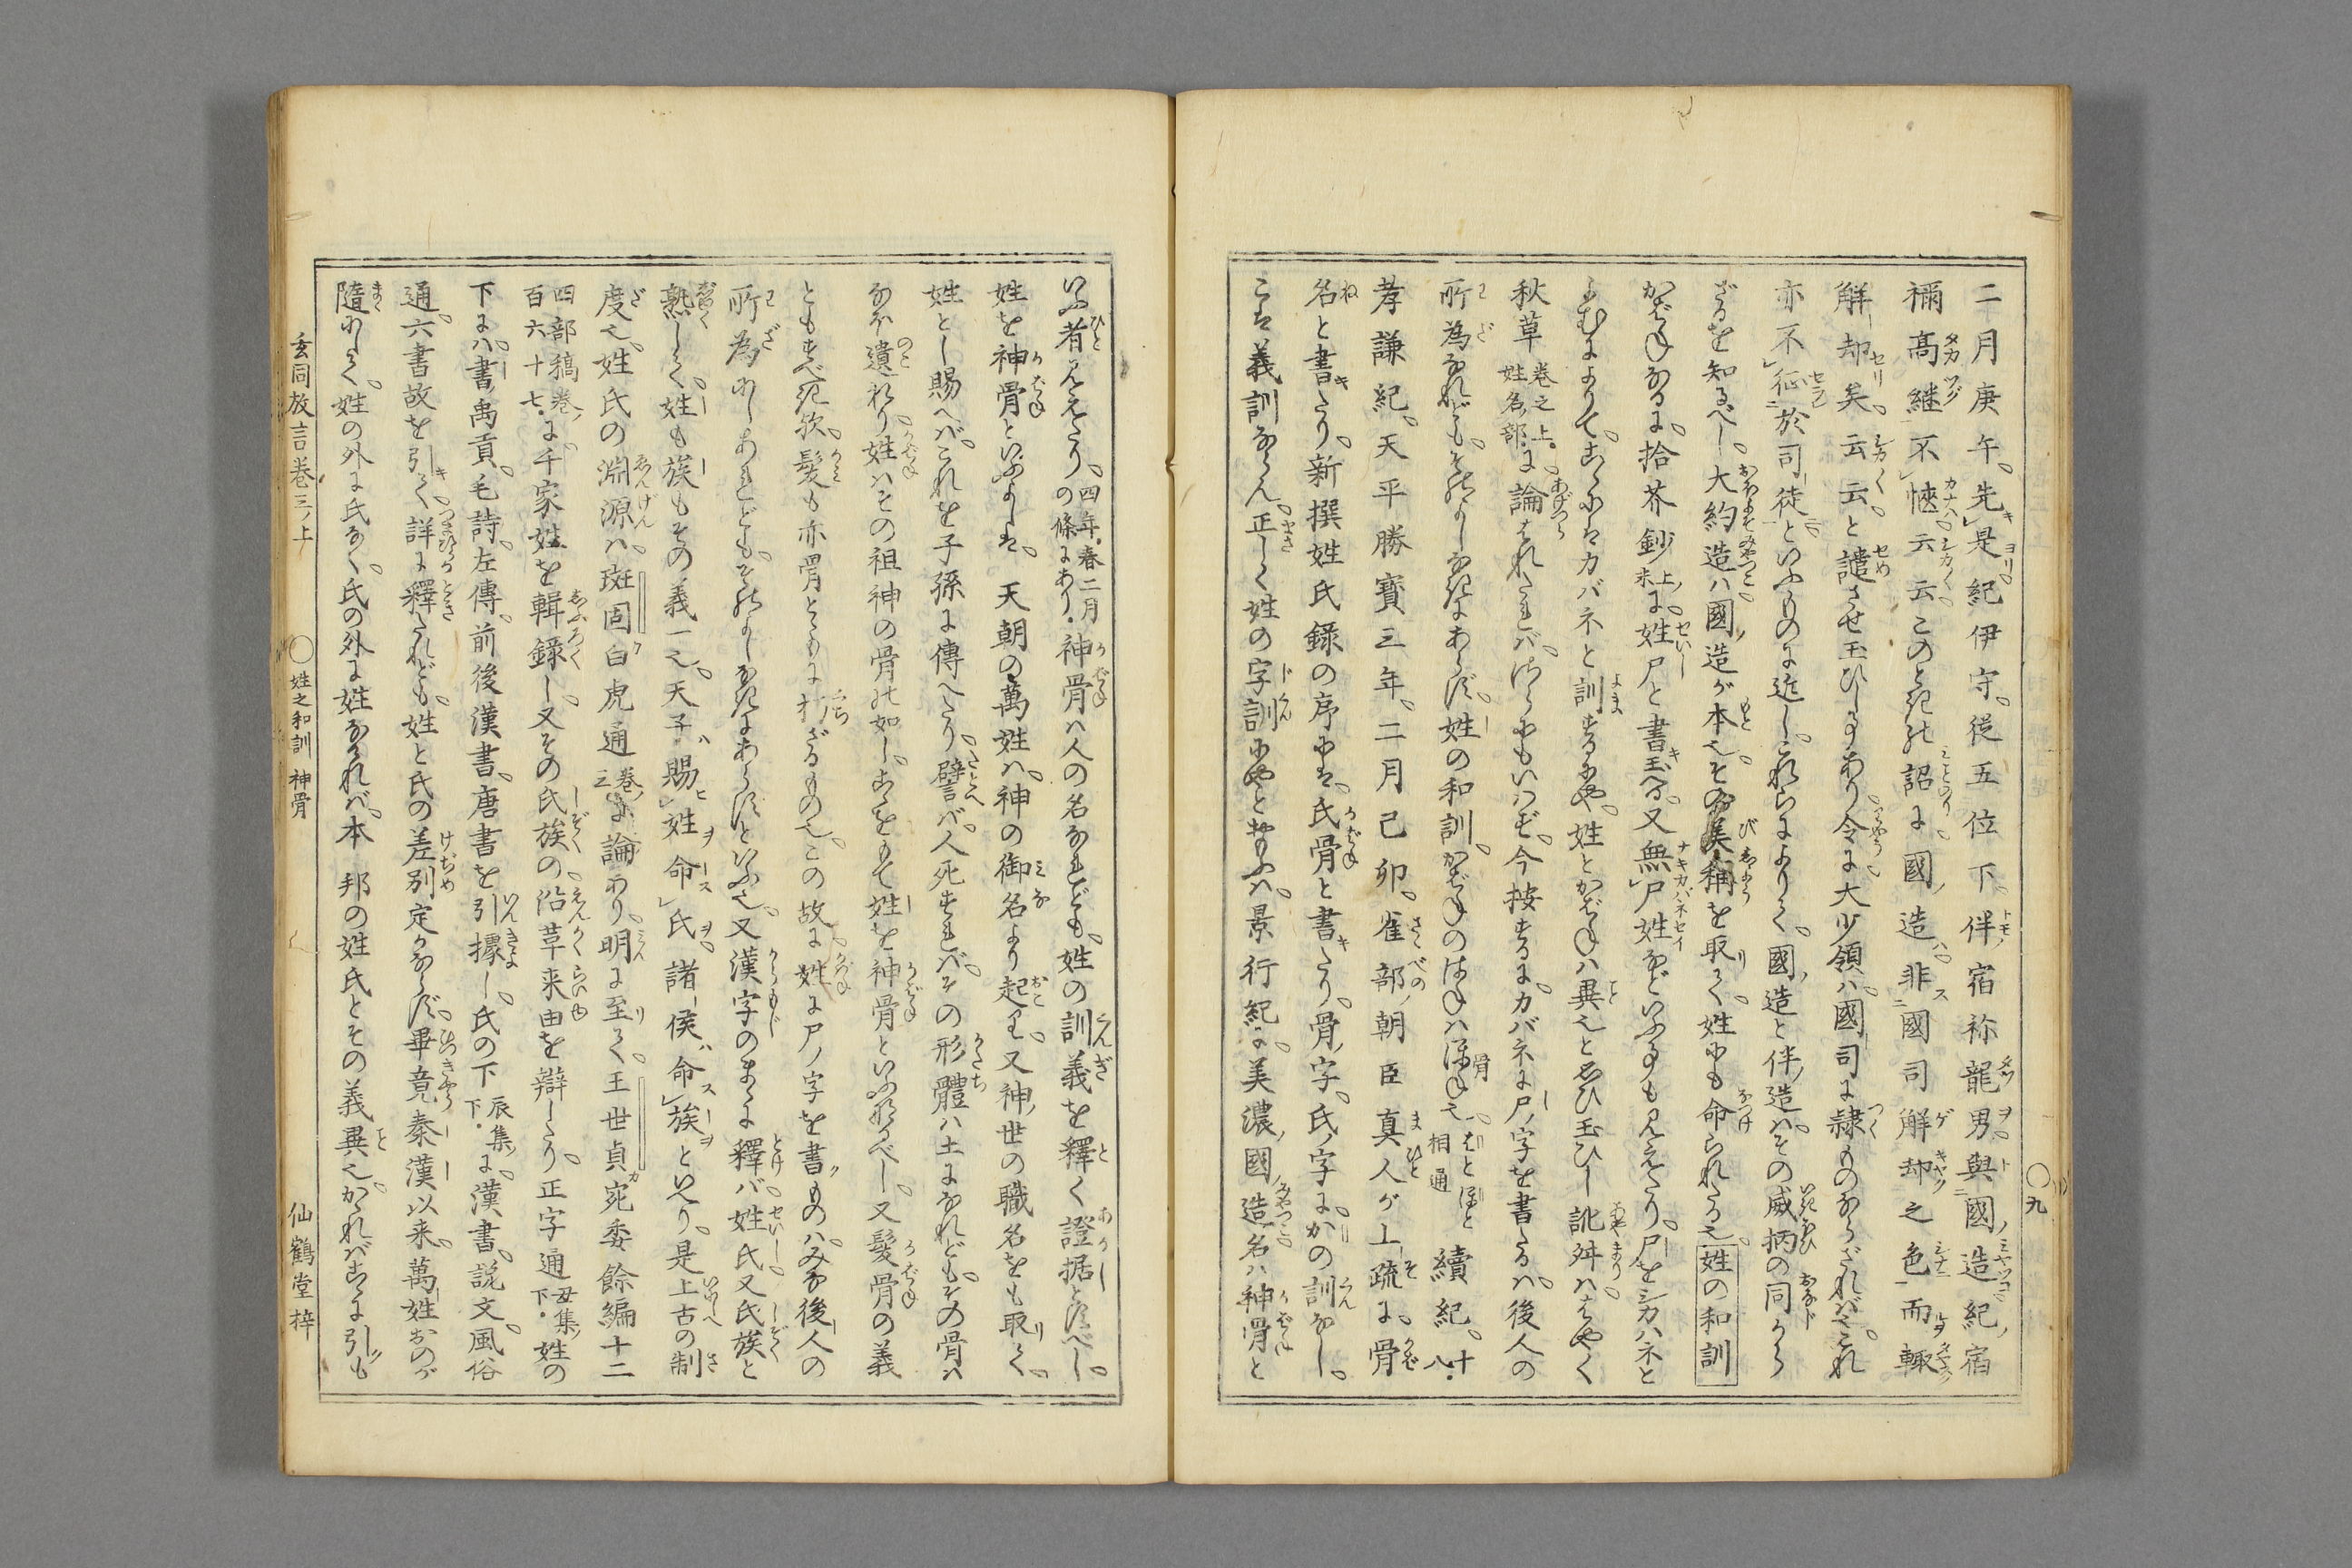 二月庚午。先是紀伊守。従五位下。伴宿祢龍男。與國造紀宿
禰高継不愜。云云。このとき詔に。國造非國司解却之色。而輙
解却矣。云云。と譴させ玉ひし事あり。令に大少領ハ。國司に隷ものならざれバ。これ
亦不征於司徒といふものに近し。これらによりて。國造と伴造ハ。その威柄の同から
ざるを知るべし。大約造ハ國造が本也。その美稱を取て。姓にも命られたる也。姓の和訓
かばねなるに。拾芥鈔上末に。姓尸と書玉へる。又無尸姓などいふ事も見えたり。尸をシカハネと
よむによりて。こゝにはカバネと訓するにや。姓とかばねハ異也と思ひ玉ひし訛舛ハ。はやく
秋草巻之上。姓名部に。論はれたれバ。こゝにもいはず。今按するに。カバネに尸ノ字を書たるハ。後人の
所為なれども。そのよしなきにあらず。姓の和訓。かばねのほねハ骨也。はとほと相通續紀。十八。
孝謙紀。天平勝寳三年。二月己卯。雀部朝臣真人が上疏に。骨
名と書たり。新撰姓氏録の序には。氏骨と書たり。骨ノ字。氏ノ字にかの訓なし。
こは義訓ならん。正しく姓の字訓にやとおもふハ。景行紀に。美濃ノ國造名ハ神骨と
いふ者見えたり。四年。春二月の條にあり。神骨ハ人の名なれども。姓の訓義を釋く證据とすべし。
姓を神骨といふよしは。天朝の萬姓ハ。神の御名より起り。又神世の職名をも取て。
姓とし賜へバ。これを子孫に傳へたり。譬バ。人死すれバ。その形體ハ土になれども。その骨ハ
なほ遺れり。姓ハその祖神の骨の如し。こゝをもて姓を神骨といふなるべし。又髪骨の義
ともすべき歟。髪も亦骨とゝもに朽ざるもの也。この故に。姓に尸ノ字を書ものハ。みな後人の
所為にしあれども。そのよしなきにあらずといふ也。又漢字のまゝに釋バ。姓氏又氏族と
熟して。姓も族もその義一也。天子ハ賜姓命氏。諸侯ハ命族といへり。是上古の制
度也。姓氏の淵源ハ。班固白虎通巻ノ三に論あり。明に至りて。王世貞宛委餘編十二
四部稿巻ノ百六十七。に。千家姓を輯録し。又その氏族の沿革来由を辯したり。正字通丑集ノ下。姓の
下にハ。書ノ禹貢。毛詩。左傳。前後漢書。唐書を引據し。氏の下辰集ノ下。に。漢書。説文。風俗
通。六書故を引て。詳に釋たれども。姓と氏の差別定かならず。畢竟秦漢以来。萬姓おのが
隨にして。姓の外に氏なく。氏の外に姓なけれバ。本邦の姓氏とその義異也。かゝれバこゝに引も
玄同放言巻三ノ上　○姓之和訓　神骨　仙鶴堂梓
○九